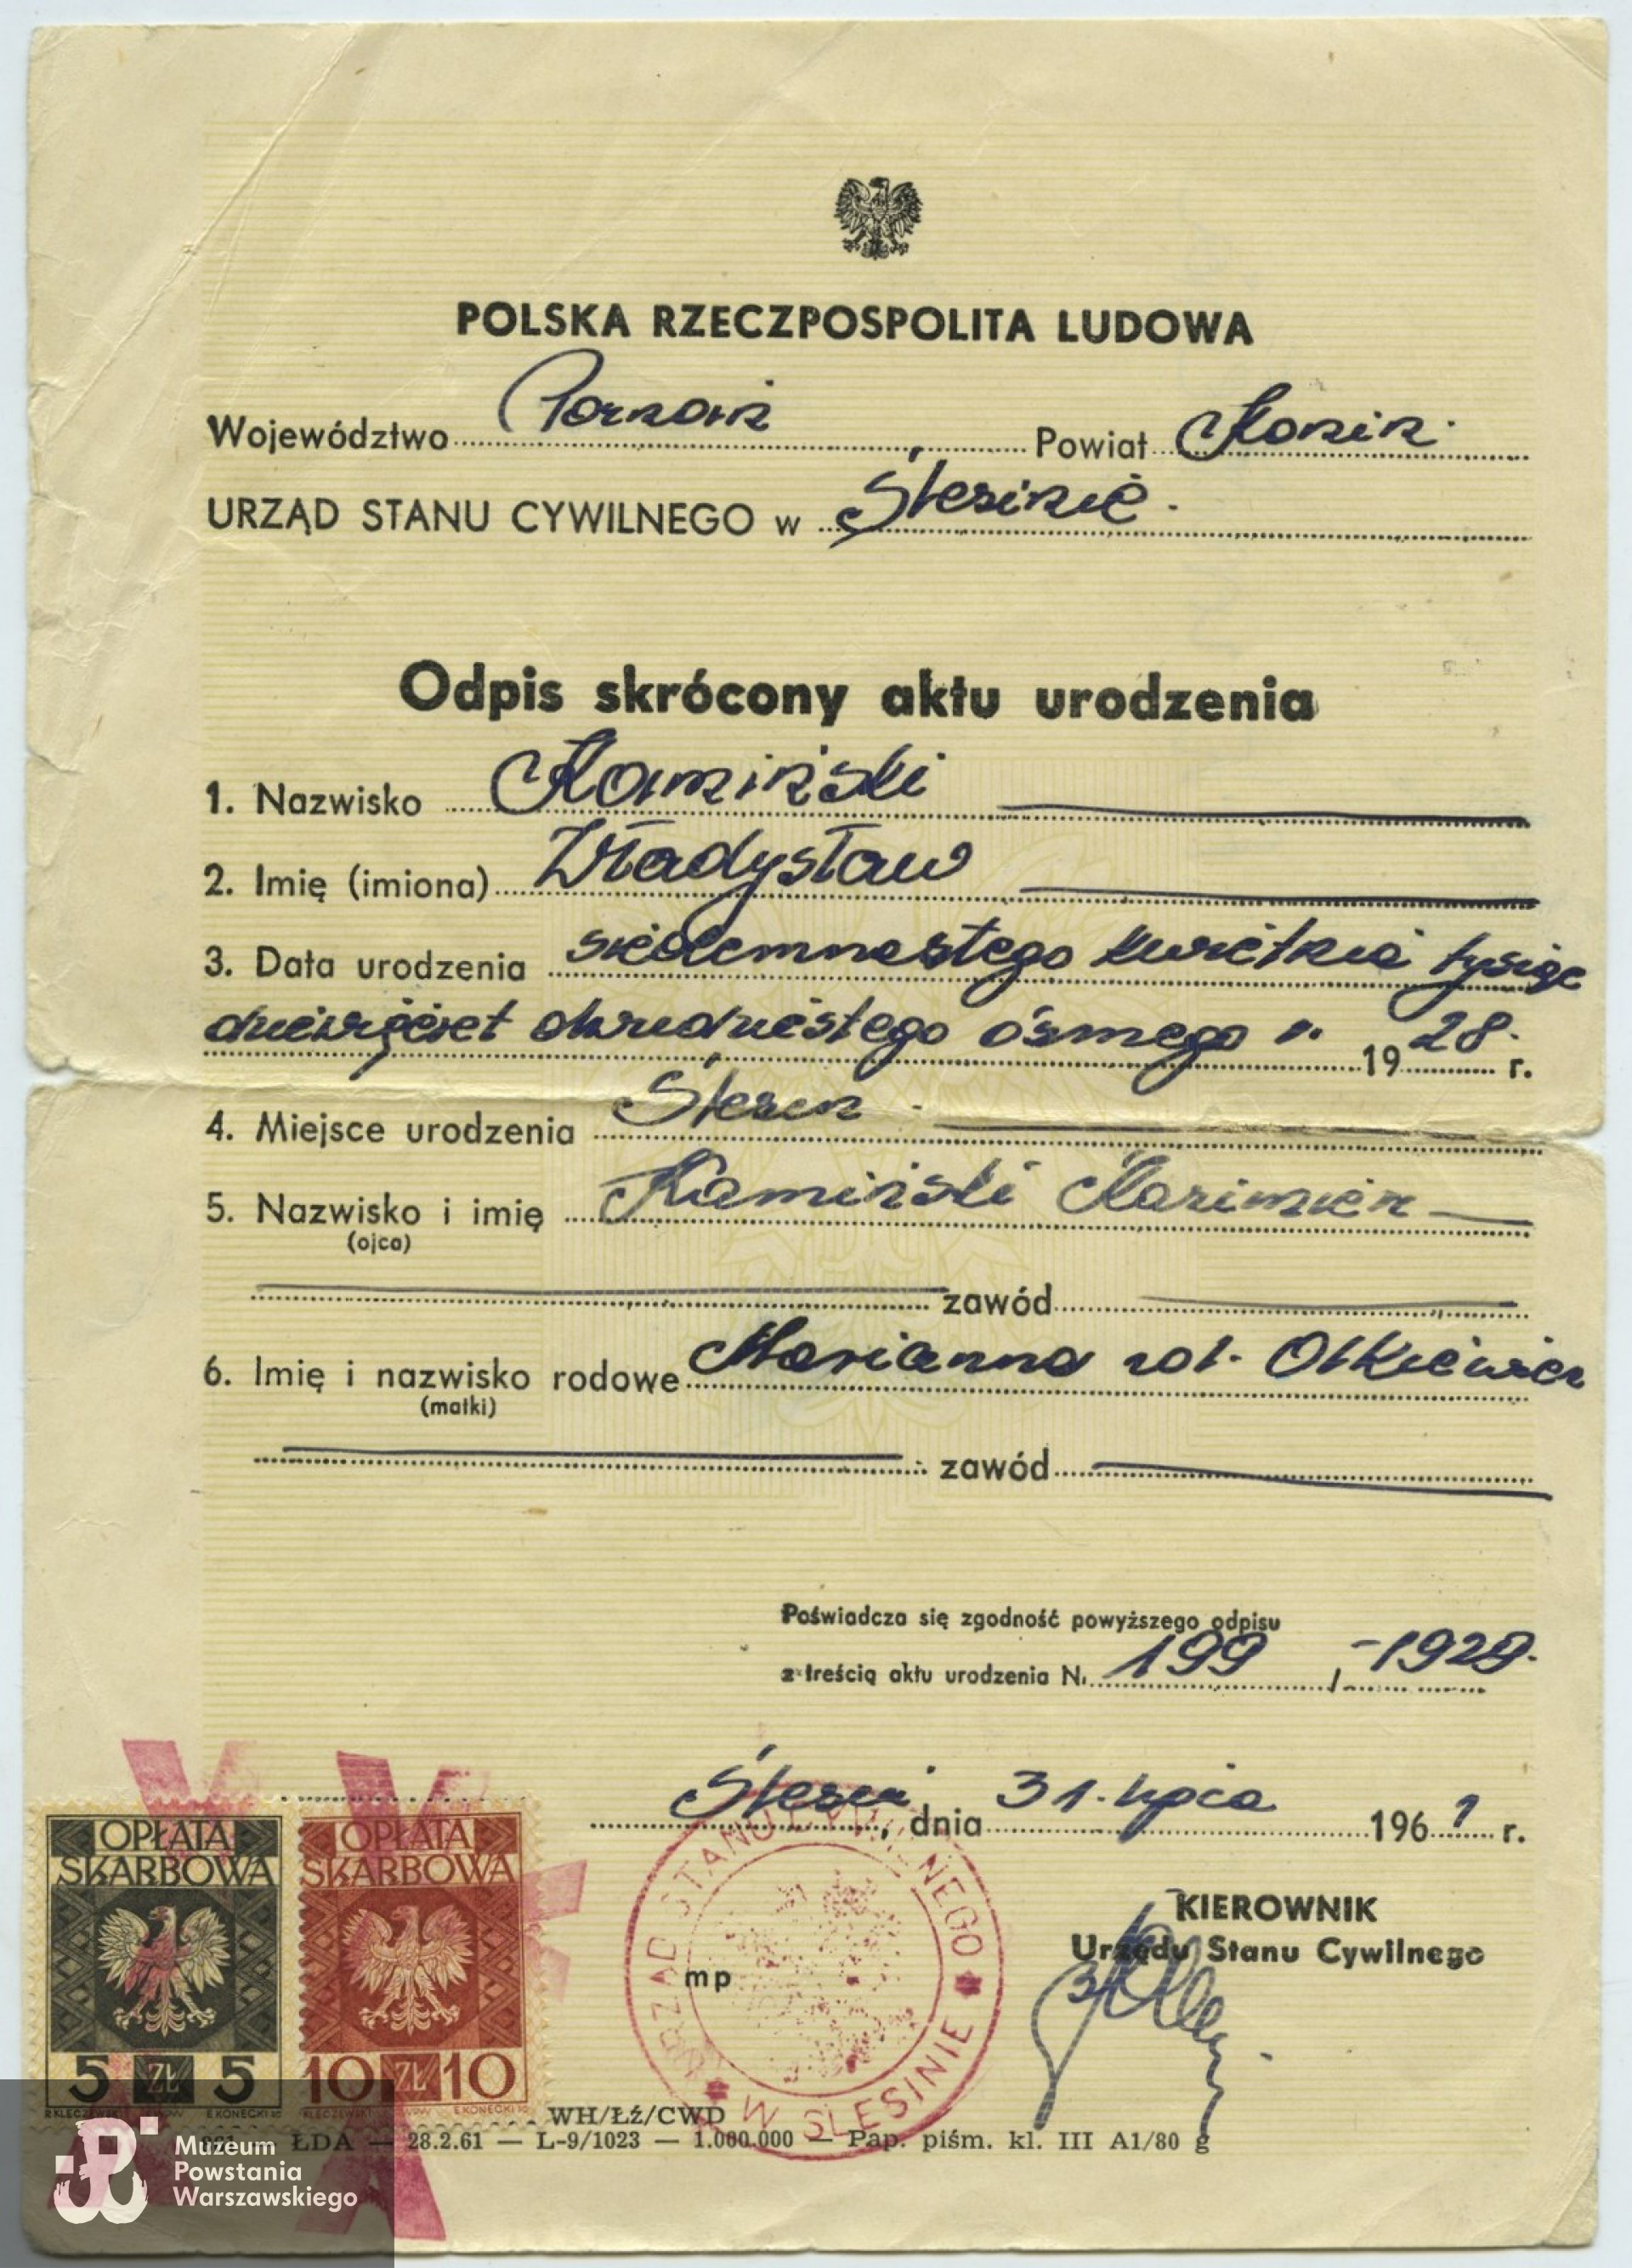 POLSKA RZECZPOSPOLITA LUDOWA
Województwo Poznań Powiat Konin.
URZĄD STANU CYWILNEGO w Ślesinie.
Odpis skrócony aktu urodzenia
1. Nazwisko Kamiński
2. Imię (imiona) Władysław
3. Data urodzenia siedemnastego kwietnia tysiąc
dziewięćset dwudziestego ósmego r. 19 28. r.
4. Miejsce urodzenia Ślesin
5. Nazwisko i imię Kamiński Kazimierz
(ojca)
zawód
6. Imię i nazwisko rodowe Marianna zd.
(matki)
zawód
Poświadcza się zgodność powyższego odpisu
z treścią aktu urodzenia N. 199 /
Ślesin, dnia 31. lipca 196 1 r.
KIEROWNIK
Urzędu Stanu Cywilnego
mp
URZĄD STANU CYWILNEGO
W ŚLESINIE
OPŁATA SKARBOWA
5 ZŁ 5
OPŁATA SKARBOWA
10 ZŁ 10
WH/Łź/CWD
ŁDA — 28.2.61 — L-9/1023 — 1.000.000 — Pap. piśm. kl. III A1/80 g
Muzeum
Powstania
Warszawskiego